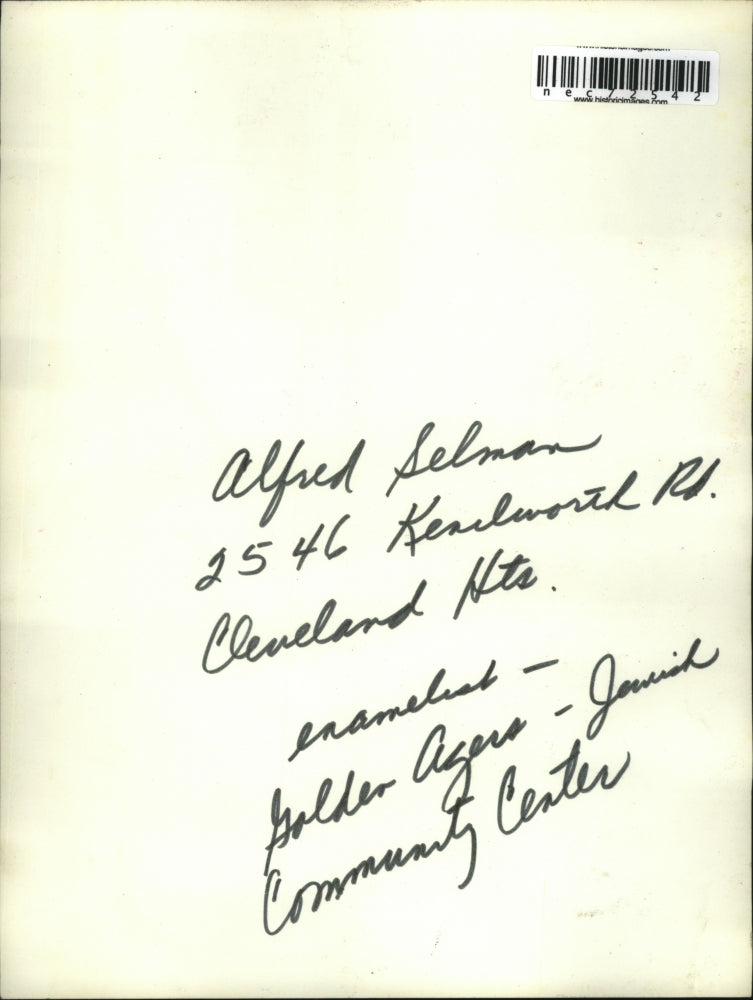 www.historicimages.com
nec72542
www.historicimages.com
Alfred Selman
2546 Kenilworth Rd.
Cleveland Hts.
enamelist -
Golden Agers - Jewish
Community Center